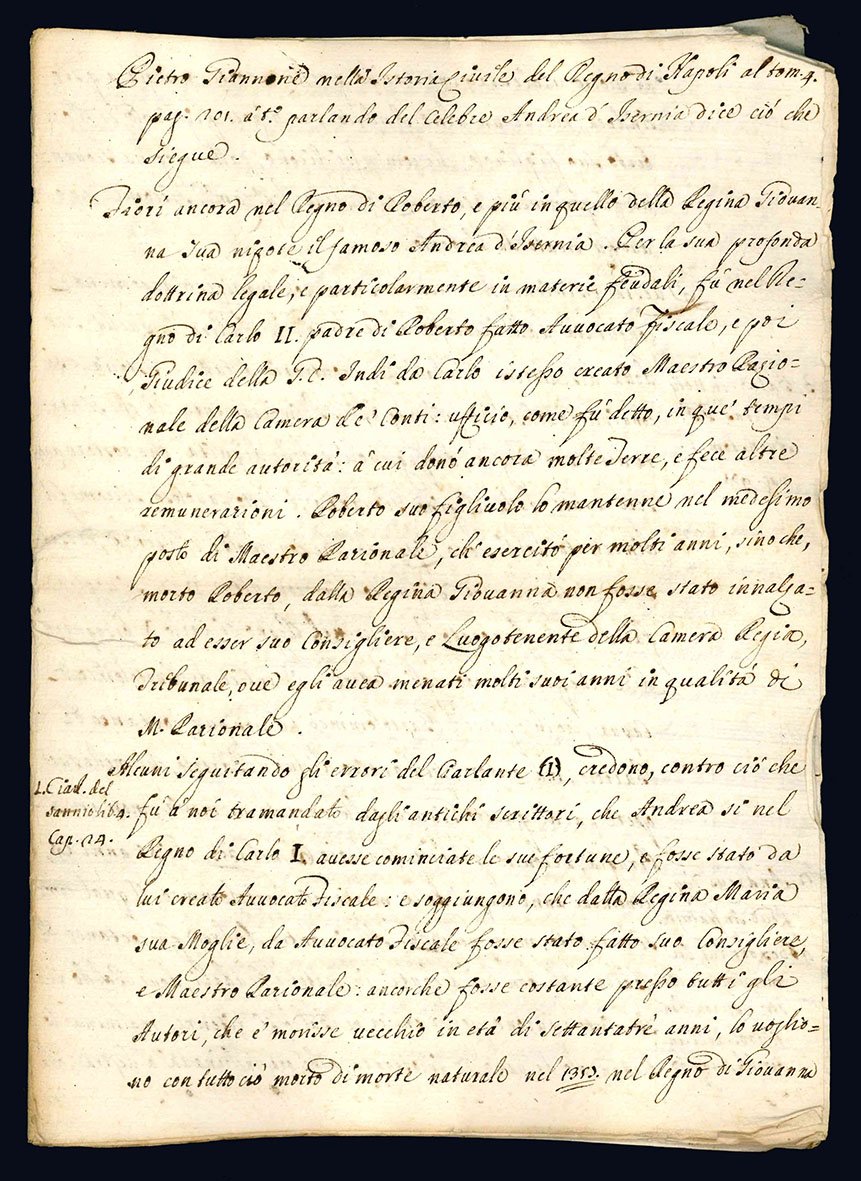 Pietro Giannone nella Istoria Civile del Regno di Napoli al tom. 4.
pag. 201. à t.º parlando del Celebre Andrea d'Isernia dice ciò che
siegue.
Fiorì ancora nel Regno di Roberto, e più in quello della Regina Giovan-
na sua nipote il famoso Andrea d'Isernia. Per la sua profonda
dottrina legale, e particolarmente in materie feudali, fù nel Re=
gno di Carlo II. padre di Roberto fatto Avvocato Fiscale, e poi
Giudice della G.C. Indi da Carlo istesso creato Maestro Razio=
nale della Camera de' Conti: ufficio, come fù detto, in que' tempi
di grande autorità: à cui donò ancora molte Terre, e fece altre
remunerazioni. Roberto suo figliuolo lo mantenne nel medesimo
posto di Maestro Razionale, ch'esercitò per molti anni, sino che,
morto Roberto, dalla Regina Giovanna non fosse stato innalza=
to ad esser suo Consigliere, e Luogotenente della Camera Regia,
Tribunale, ove egli avea menati molti suoi anni in qualità di
M. Razionale.
Alcuni seguitando gli errori del Ciarlante (1), credono, contro ciò che
1. Ciarl. del
sannio lib 4.
Cap. 24.
fù à noi tramandato dagli antichi scrittori, che Andrea si nel
Regno di Carlo I. avesse cominciate le sue fortune, e fosse stato da
lui creato Avvocato Fiscale: e soggiungono, che dalla Regina Maria
sua Moglie, da Avvocato Fiscale fosse stato fatto suo Consigliere,
e Maestro Razionale: ancorche fosse costante presso tutti gli
Autori, che e' morisse vecchio in età di settantatrè anni, lo voglio=
no con tutto ciò morto di morte naturale nel 1353. nel Regno di Giovanna